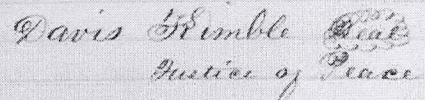 Davis Kimble Seal
Justice of Peace